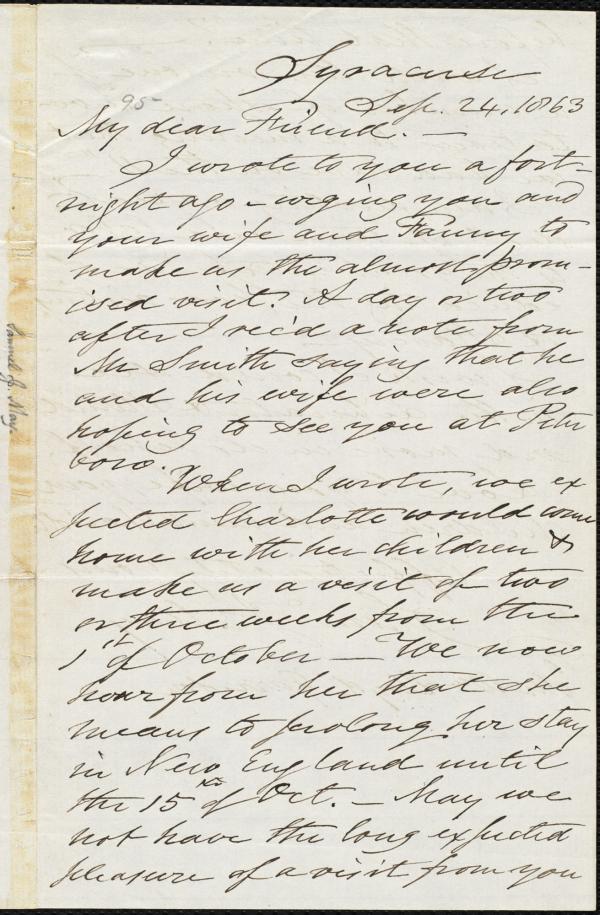 Syracuse
Sep. 24, 1863
95
My dear Friend. —
I wrote to you a fort-
night ago - urging you and
your wife and Fanny to
make us the almost prom-
ised visit. A day or two
after I rec'd a note from
Mr Smith saying that he
and his wife were also
hoping to see you at Peter
boro.
When I wrote, we ex
pected Charlotte would come
home with her children &
make us a visit of two
or three weeks from the
1st of October — We now
hear from her that she
means to prolong her stay
in New England until
the 15th of Oct. — May we
not have the long expected
pleasure of a visit from you
Samuel J. May.